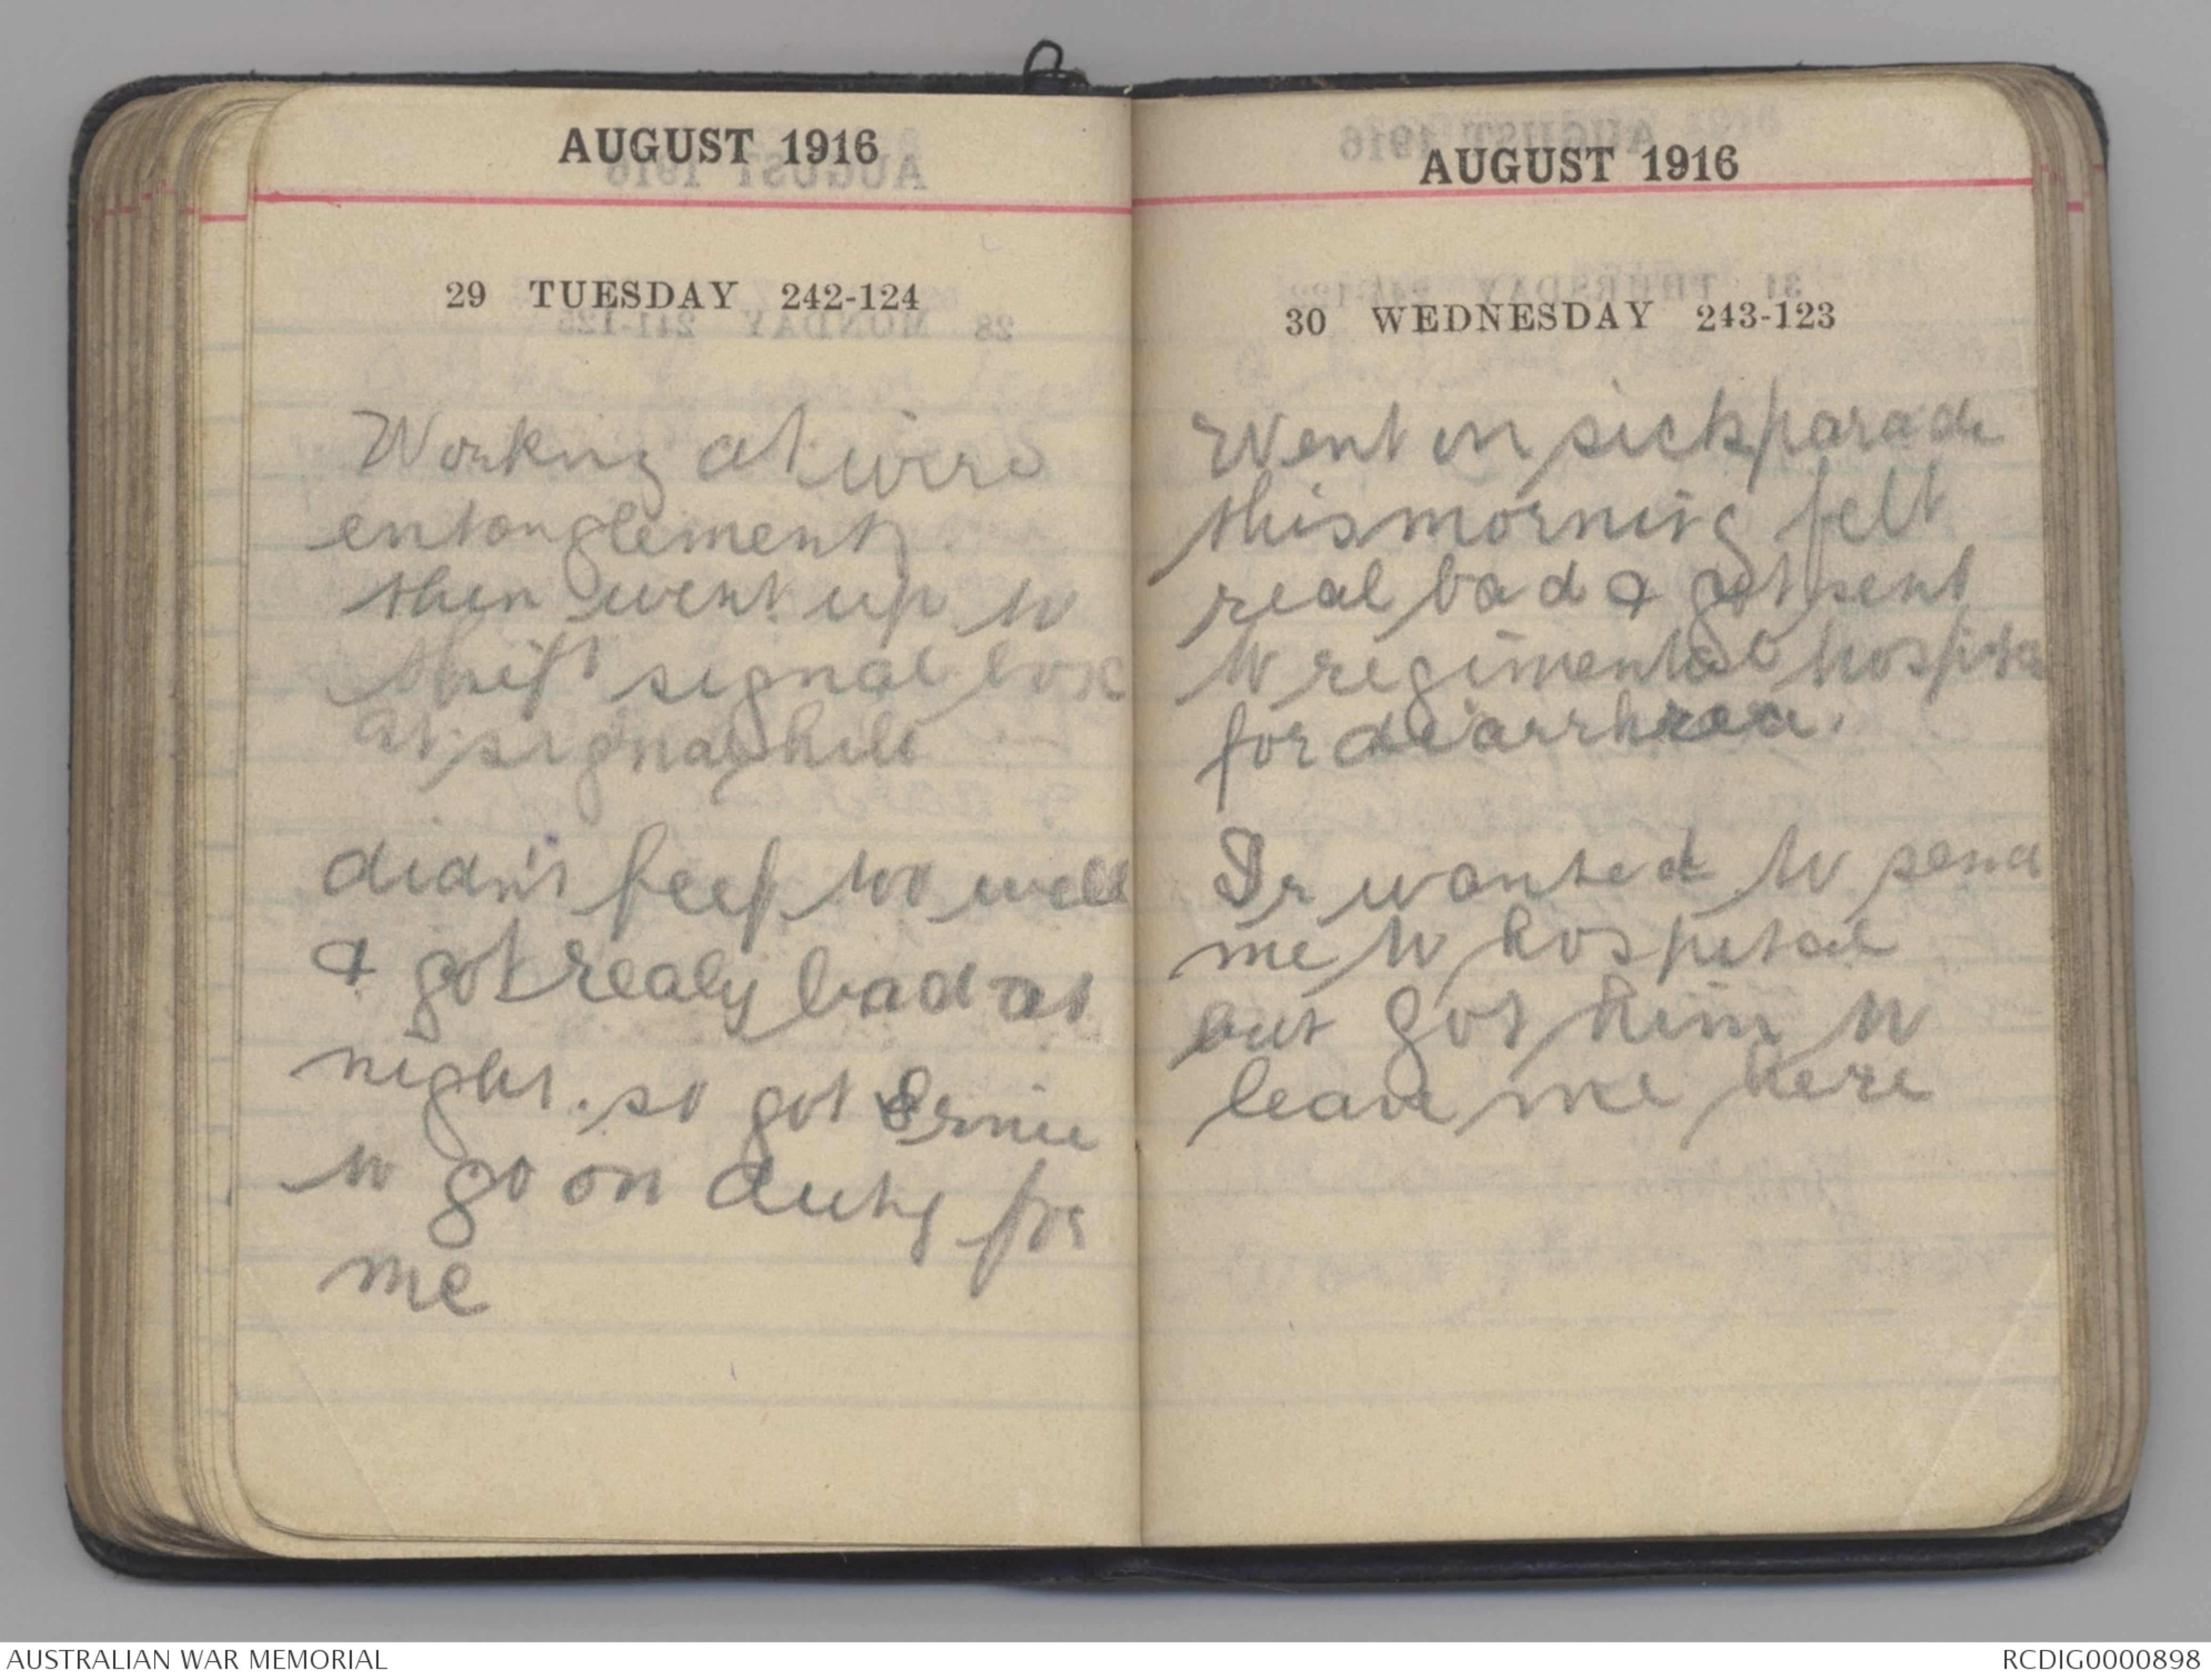 AUGUST 1916
29 TUESDAY 242-124
Working at wire
entanglement
then went up to
shift signal box
at signal hill
didn't feel too well
& got realy bad at
night. so got Ernie
to go on duty for
me
AUGUST 1916
30 WEDNESDAY 243-123
Went on sick parade
this morning felt
real bad & got sent
to regimental hospital
for diarrhoea.
Dr wanted to send
me to hospital
but got him to
leave me here
AUSTRALIAN WAR MEMORIAL
RCDIG0000898